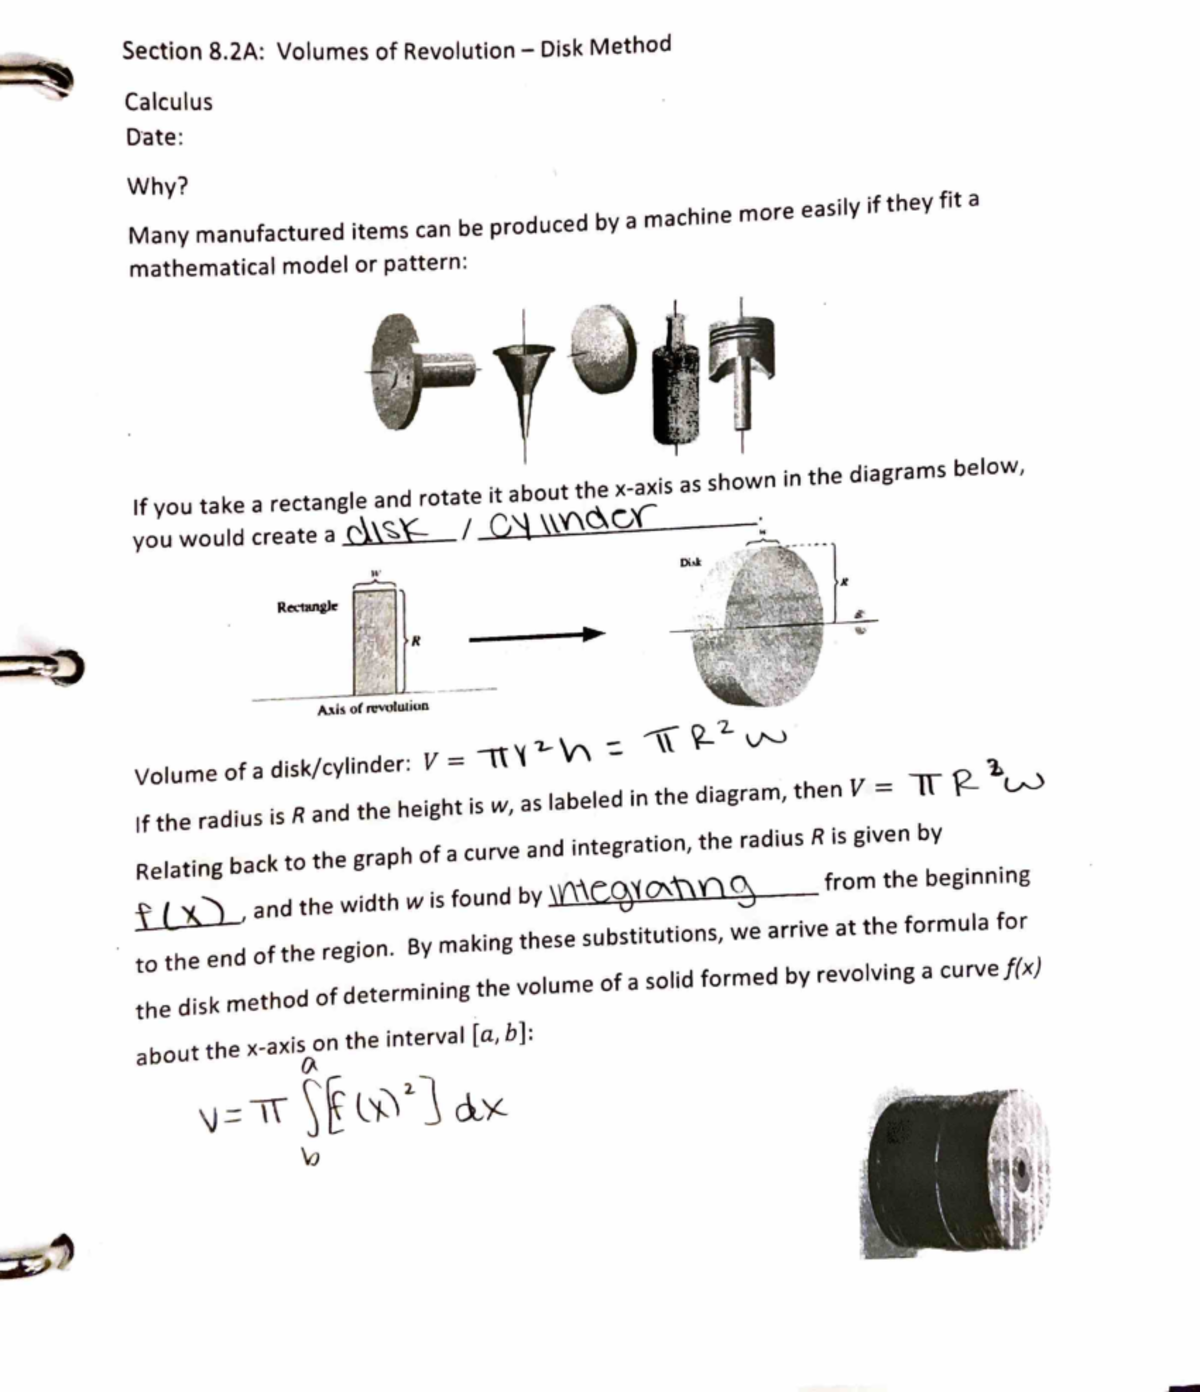 Section 8.2A: Volumes of Revolution – Disk Method
Calculus
Date:
Why?
Many manufactured items can be produced by a machine more easily if they fit a
mathematical model or pattern:
If you take a rectangle and rotate it about the x-axis as shown in the diagrams below,
you would create a disk / cylinder
w
Disk
Rectangle
R
R
Axis of revolution
Volume of a disk/cylinder: V = πr²h = πR²w
If the radius is R and the height is w, as labeled in the diagram, then V = πR²w
Relating back to the graph of a curve and integration, the radius R is given by
f(x), and the width w is found by integrating from the beginning
to the end of the region. By making these substitutions, we arrive at the formula for
the disk method of determining the volume of a solid formed by revolving a curve f(x)
about the x-axis on the interval [a, b]:
a
V=π ∫[f(x)²] dx
b